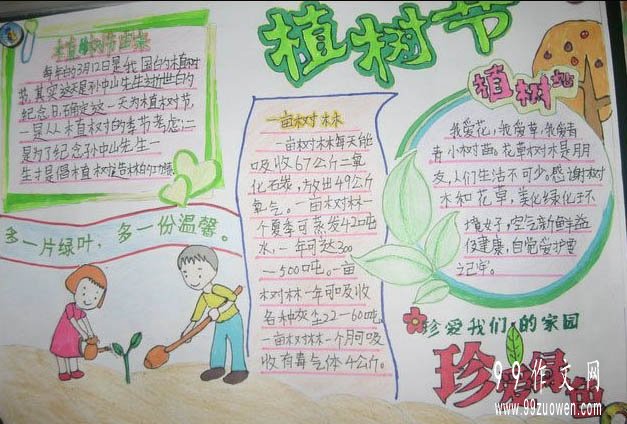 植树节
植树节由来
每年的3月12日是我国的植树
节,其实这天是孙中山先生逝世的
纪念日,确定这一天为植树节,
一是从植树的季节考虑;二
是为了纪念孙中山先生一
生才是倡植树造林的功绩
多一片绿叶,多一份温馨。
一亩树林
一亩树林每天能
吸收67公斤二氧
化石炭,放出49公斤
氧气。一亩树林一
个夏季可蒸发42吨
水,一年可达300
—500吨。一亩
树林一年可吸收
各种灰尘22—60吨
一亩树林一个月可吸
收有毒气体4公斤。
植树
我爱花,我爱草,我爱青
青小树苗。花草树木是朋
友,人们生活不可少。感谢树
木和花草,美化绿化环
境好,空气新鲜益
健康,自觉爱护要
记牢。
珍爱我们的家园
珍爱绿色
99作文网
www.99zuowen.com